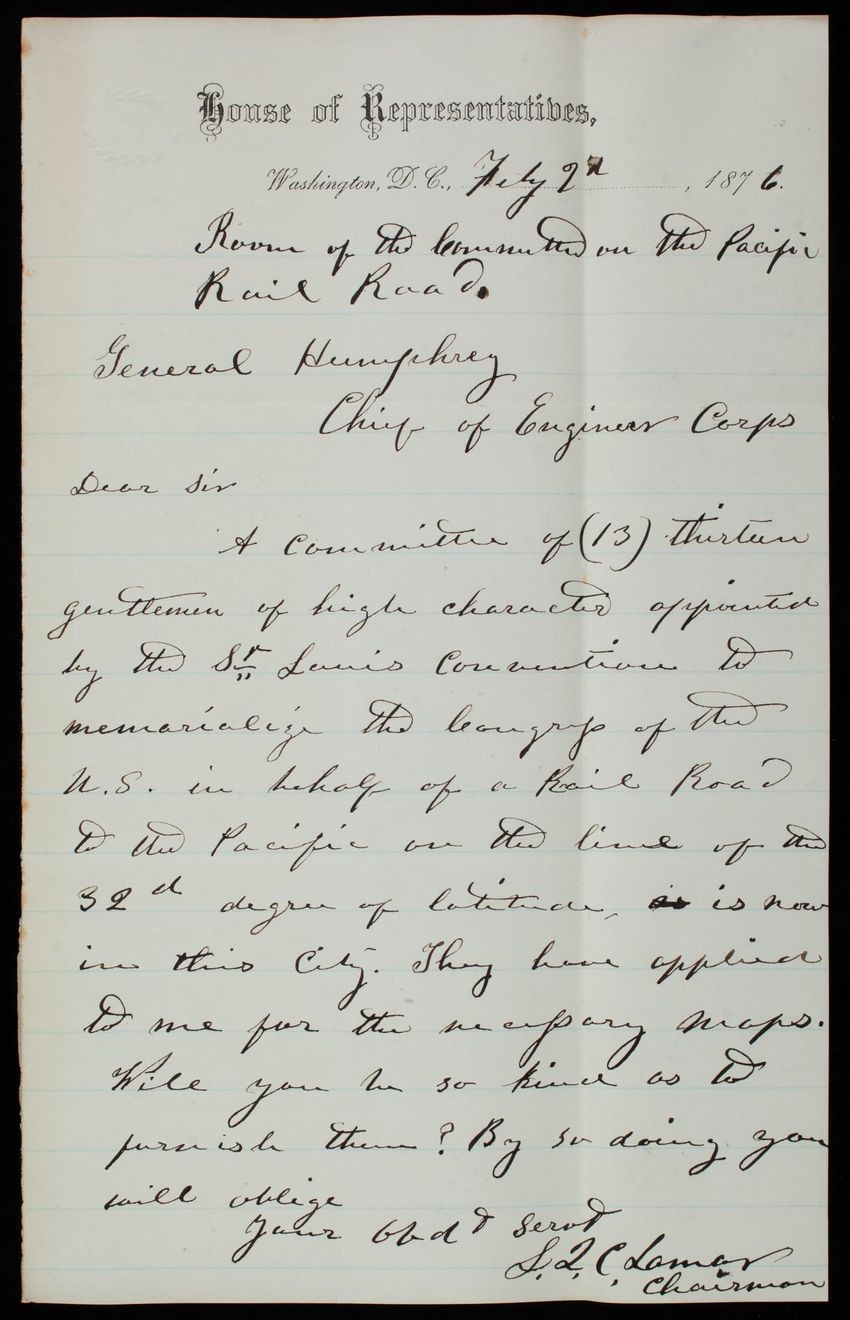 House of Representatives,
Washington, D.C., Feby 2d, 1876.
Room of the Committee on the Pacific
Rail Road.
General Humphrey
Chief of Engineer Corps
Dear Sir
A committee of (13) thirteen
gentlemen of high character appointed
by the St. Louis Convention to
memorialize the Congress of the
U.S. in behalf of a Rail Road
to the Pacific on the line of the
32d degree of latitude, is is now
in this City. They have applied
to me for the necessary maps.
Will you be so kind as to
furnish them? By so doing you
will oblige
Your obdt servt
L. Q. C. Lamar
Chairman